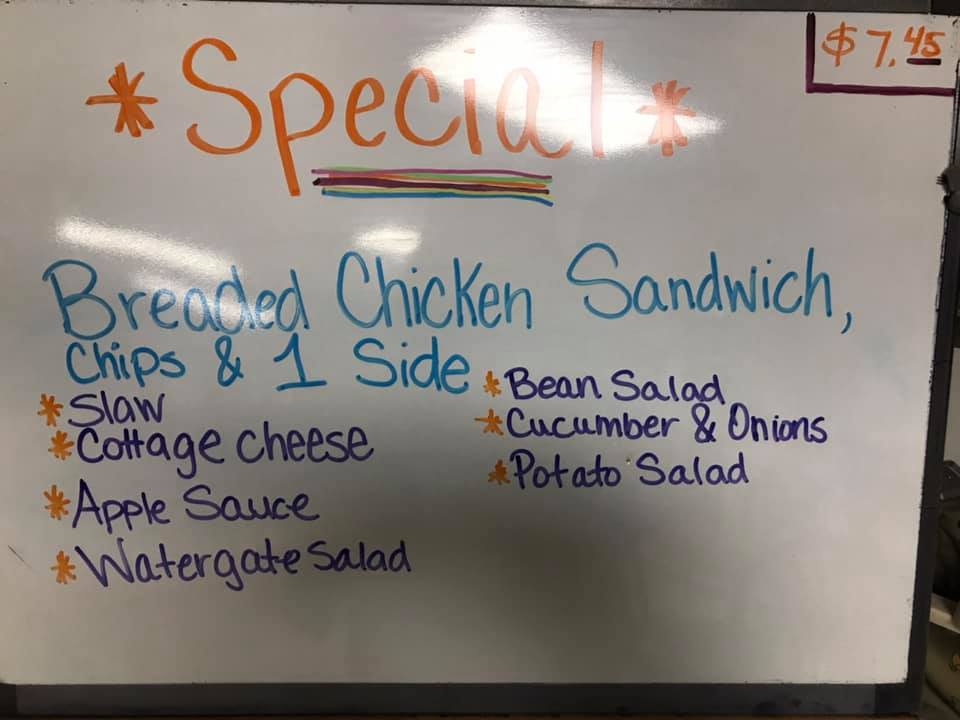 *Special*
$7.45
Breaded Chicken Sandwich,
Chips & 1 Side
*Slaw
*Cottage Cheese
*Apple Sauce
*Watergate Salad
*Bean Salad
*Cucumber & Onions
*Potato Salad